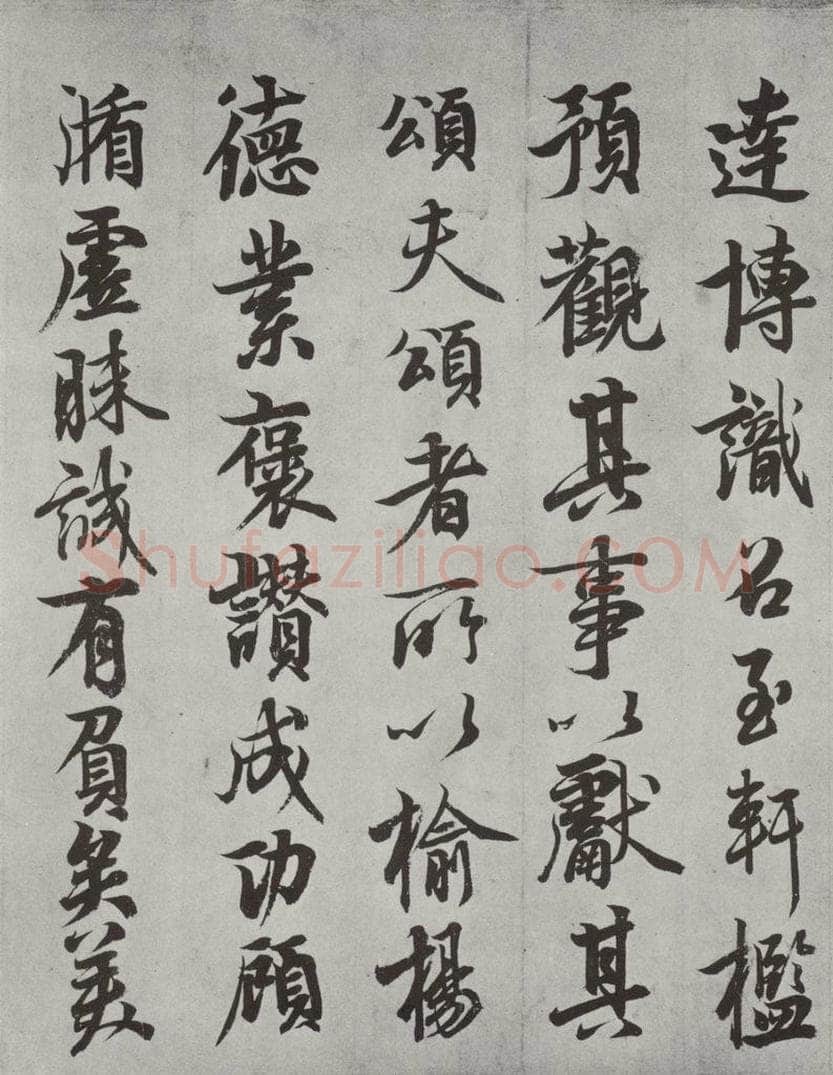 達博識召至軒檻
預觀其事以獻其
頌夫頌者所以榆楊
德業褒讚成功顧
循虛昧誠有負矣美
Shufaziliao.COM